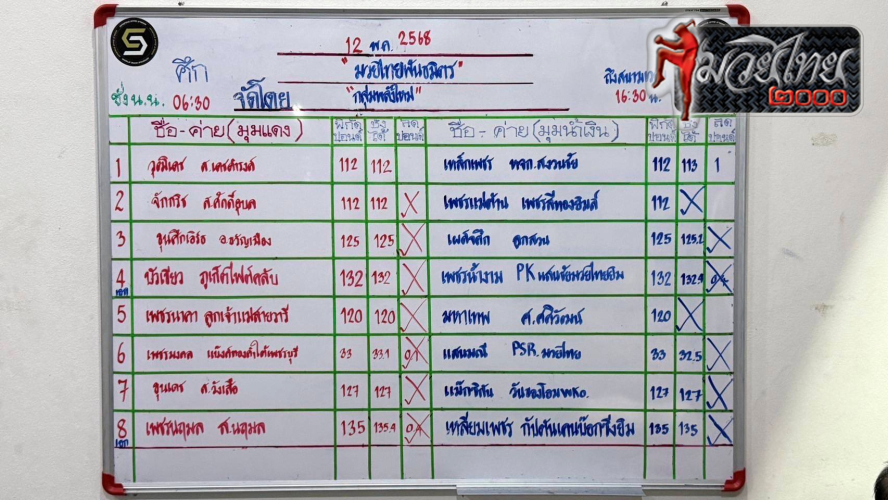 12 พ.ค. 2568
ศึก "มวยไทยพันธมิตร"
ชั่ง น.น. 06:30 จัดโดย "กลุ่มพลังใหม่" ถึงสนาม 16:30 น.
มวยไทย ๒๐๐๐
ชื่อ - ค่าย (มุมแดง) พิกัด ปอนด์ ชั่งได้ ลด ปอนด์ ชื่อ - ค่าย (มุมน้ำเงิน) พิกัด ปอนด์ ชั่งได้ ลด ปอนด์
1 วุฒิเดช ส.เดชดำรงค์ 112 112 เหล็กเพชร 112 113 1
2 จักกริช ส.ศักดิ์อุบล 112 112 เพชรแม่ค้าน เพชรสี่ทองอิมส์ 112
3 อ.ขวัญเมือง 125 125 ลูกสวน 125 125.2
4 เอก บัวเขียว ภูเก็ตไฟต์คลับ 132 132 เพชรน้ำงาม PK แสนชัยมวยไทยยิม 132 132.4 0.4
5 เพชรนาคา ลูกเจ้าแม่สายวารี 120 120 มหาเทพ ศ.ศศิวัฒน์ 120
6 เพชรมงคล 33 33.1 0.1 แสนมณี PSR.มวยไทย 33 32.5
7 ขุนเดช ส.วังเสือ 127 127 127 127
8 เอก เพชรนฤมล ส.นฤมล 135 135.4 0.4 เหลี่ยมเพชร กัปตันเคนบ๊อกซิ่งยิม 135 135